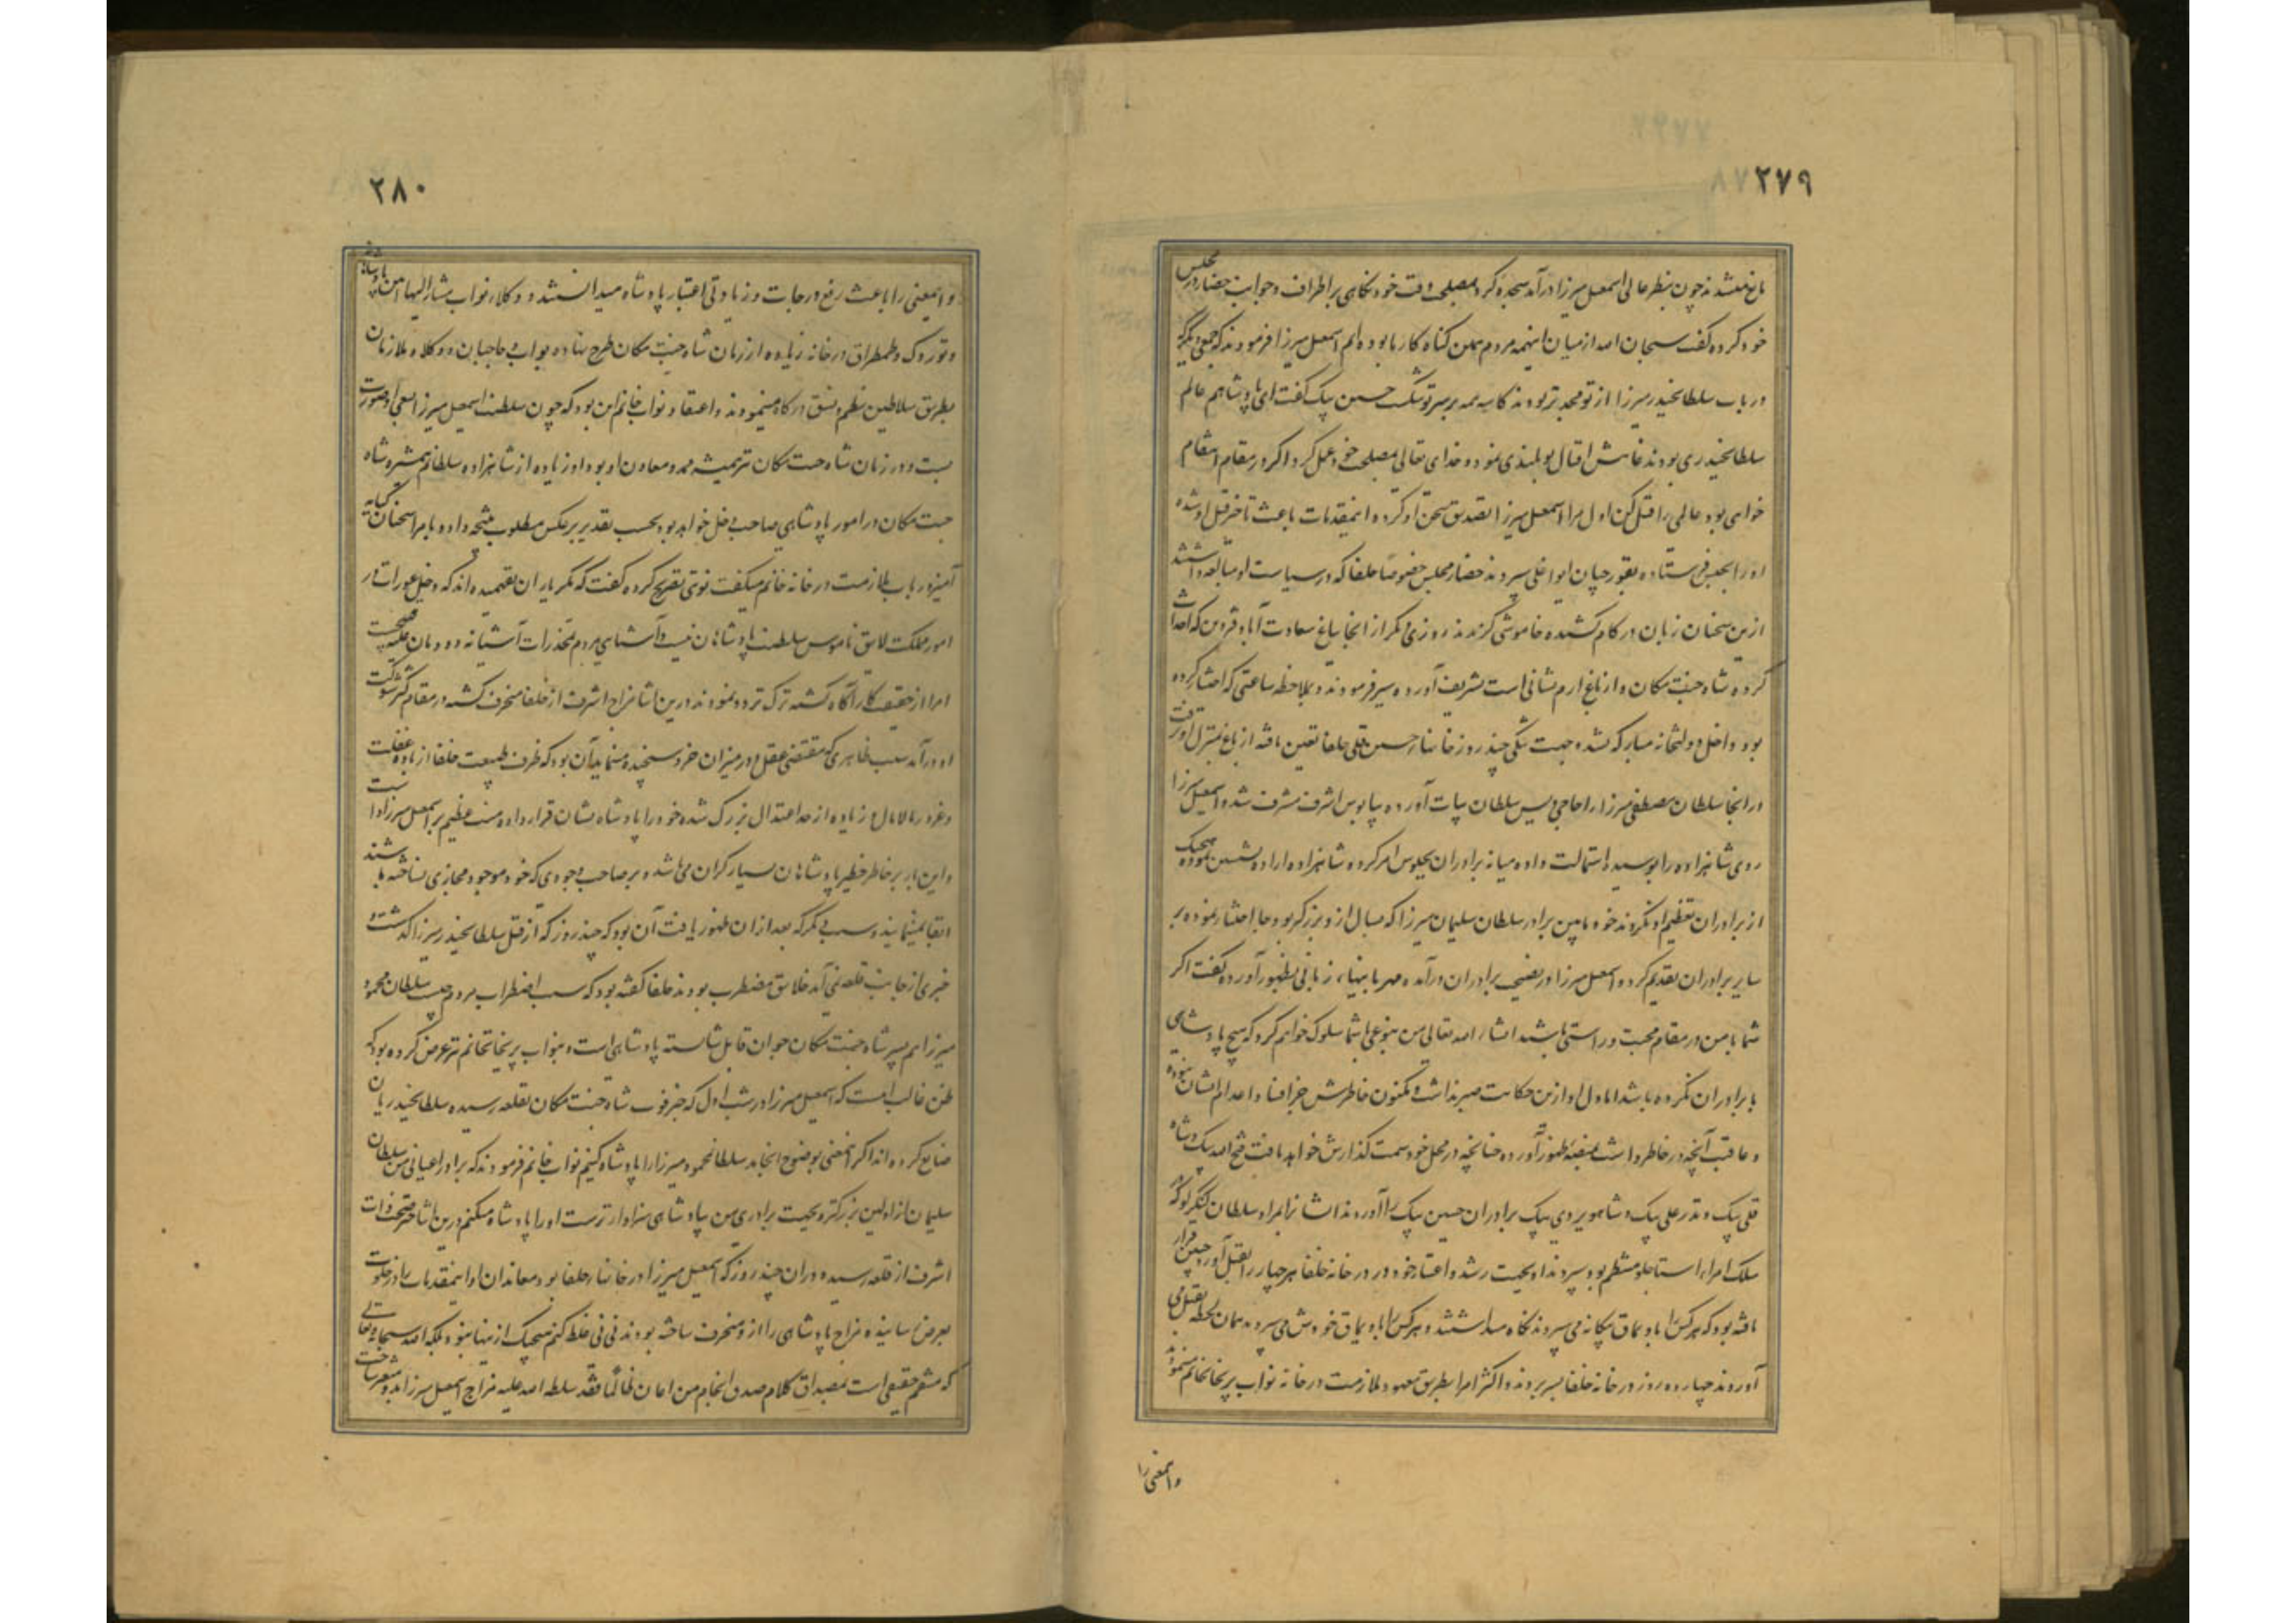 ۲۷۹
مانع نمیشدند چون بنظر عالی اسمعیل میرزا درآمد سجده کرد بمصلحت وقت خود نکاهی بر اطراف و جوانب حضار مجلس
خود کرده کفت سبحان الله از میان اینهمه مردم همین کناه کار ما بوده‌ایم اسمعیل میرزا فرمودند که جمعی دیکر که
در باب سلطانحیدر میرزا از تو مجدتر بودند کاسه همه بر سر تو شکست حسین بیک کفت ای پادشاهم عالم
سلطانحیدری بودند غایتش اقبال تو بلندی نمود و خدای تعالی بمصلحت خود عمل کرد اکر در مقام انتقام
خواهی بود عالمی را قتل کن اول مرا اسمعیل میرزا تصدیق سخن او کرده اینمقدمات باعث تاخیر قتل او شده
او را بحبس فرستاده بقورچیان ایواغلی سپردند حضار مجلس خصوصا خلفا که در سیاست او مبالغه داشتند
ازین سخنان زبان در کام کشیده خاموشی کزیدند روز دیکر از آنجا بباغ سعادت آباد قزوین که احداث
کرده شاه جنت مکان و از باغ ارم نشانی است تشریف آورده سیر فرمودند و بملاحظه ساعتی که اختیار کرده
بود داخل دولتخانه مبارکه نشده جهت تنگی چند روز خانه حسین قلی خلفا تعیین یافته از باغ بمنزل او رفت
در آنجا سلطان مصطفی میرزا را حاجی ویس سلطان بیات آورده بپابوس اشرف مشرف شد و اسمعیل میرزا
روی شاهزاده را بوسیده استمالت داده میانه برادران بجلوس امر کرده شاهزاده اراده نشستن نموده هیچیک
از برادران تعظیم او نکردند خود مابین برادر سلطان سلیمان میرزا که بسال ازو بزرکتر بود جا اختیار نموده بر
سایر برادران تقدیم کرده اسمعیل میرزا در نصیحت برادران درآمده مهربانیهای زبانی بظهور آورده کفت اکر
شما با من در مقام محبت و راستی باشید انشاء الله تعالی من بنوعی با شما سلوک خواهم کرد که هیچ پادشاهی
با برادران نکرده باشد اما دل او ازین حکایت خبر نداشت و مکنون خاطرش جز افنا و اعدام ایشان نبوده
و عاقبت آنچه در خاطر داشت بمنصه ظهور آورده چنانچه در محل خود سمت کذارش خواهد یافت فتح الله بیک و شاه
قلی بیک و نذر علی بیک و شاهویردی بیک برادران حسین بیک را آوردند ایشانرا بامراء سلطان کنکرلو که در
سلک امراء استاجلو منتظم بود سپردند او بجهت رشد و اعتبار خود در در خانه خلفا هر چهار را بقتل آورد چنین قرار
یافته بود که هر کس را باویماق بیکانه می سپردند نکاه میداشتند و هر کس را باویماق خودش می سپردند همان لحظه بقتل می
آوردند چهارده روز در خانه خلفا بسر بردند و اکثر امرا بطریق معهود ملازمت در خانه نواب پریخانخانم مینمودند
واینمعنی را
۲۸۰
و اینمعنی را باعث رفع درجات و زیادتی اعتبار پادشاه میدانستند و وکلاء نواب مشار الیها آئین پادشاهانه
و توزوک و طمطراق در خانه زیاده از زمان شاه جنت مکان طرح نهاده بواب و حاجبان و وکلا و ملازمان
بطریق سلاطین نظم و نسق درکاه مینمودند و اعتقاد نواب خانم این بود که چون سلطنت اسمعیل میرزا بسعی او صورت
بست و در زمان شاه جنت مکان نیز همیشه ممد و معاون او بود او زیاده از شاهزاده سلطانم همشیره شاه
جنت مکان در امور پادشاهی صاحب دخل خواهد بود بحسب تقدیر برعکس مطلوب نتیجه داده با امرا سخنان کنایه
آمیز در باب ملازمت در خانه خانم میکفت نوبتی تصریح کرده کفت که مکر یاران نفهمیده‌اند که دخل عورات در
امور مملکت لایق ناموس سلطنت پادشاهان نیست و آشنایی مردم بمخدرات آستانه دودمان علیه قبیحست
امرا از حقیقت کار آکاه کشته ترک تردد نمودند درین اثنا مزاج اشرف از خلفا منحرف کشته در مقام کسر شوکت
او درآمد سبب ظاهری که مقتضی عقل و در میزان خرد سنجیده مینماید آن بود که ظرف طبیعت خلفا از باده غفلت
و غرور مالامال و زیاده از حد اعتدال بزرک شده خود را پادشاه نشان قرار داده منت عظیم بر اسمعیل میرزا داشت
و این بار بر خاطر خطیر پادشاهان بسیار کران می باشد و بر صاحب وجودی که خود موجود مجازی ساخته باشند
ابقا نمینمایند و سبب دیکر که بعد از آن ظهور یافت آن بود که چند روز که از قتل سلطانحیدر میرزا کذشت و
خبری از جانب قلعه نمی آمد خلایق مضطرب بودند خلفا کفته بود که سبب اضطراب مردم چیست سلطان محمود
میرزا هم پسر شاه جنت مکان جوان قابل شایسته پادشاهی است و بنواب پریخانخانم نیز عرض کرده بود که
ظن غالب آنست که اسمعیل میرزا در شب اول که خبر فوت شاه جنت مکان بقلعه رسیده سلطانحیدریان
ضایع کرده‌اند اکر اینمعنی بوضوح انجامد سلطانمحمود میرزا را پادشاه کنیم نواب خانم فرمودند که برادر اعیانی من سلطان
سلیمان ازاولین بزرکتر و بجهت برادری من بپادشاهی سزاوارترست او را پادشاه میکنم درین اثنا خبر صحت ذات
اشرف از قلعه رسیده در آن چند روز که اسمعیل میرزا در خانه خلفا بود معاندان او اینمقدمات را در خلوت
بعرض رسانیده مزاج پادشاهی را ازو منحرف ساخته بودند نی نی غلط کنم هیچیک ازینها نبود بلکه الله سبحانه و تعالی
که منتقم حقیقی است بمصداق کلام صدق انجام من اعان ظالما فقد سلطه الله علیه مزاج اسمعیل میرزا بدو متغیر ساخت